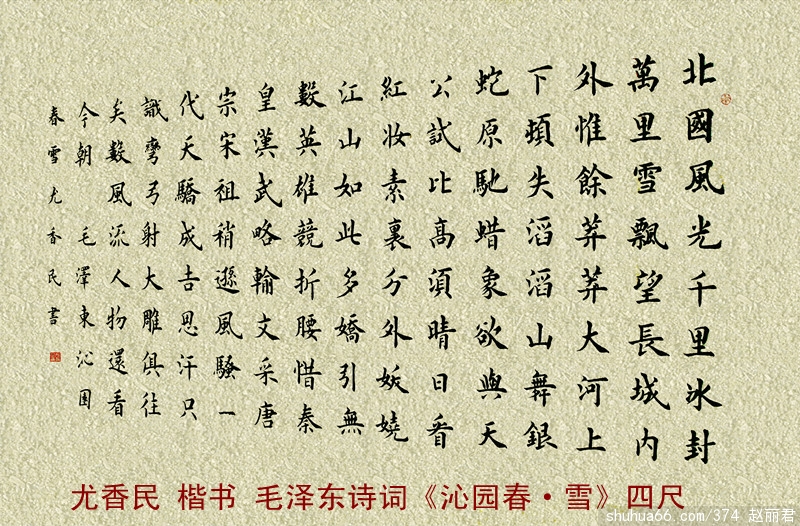 北國風光千里冰封
萬里雪飄望長城内
外惟餘莽莽大河上
下頓失滔滔山舞銀
蛇原馳蜡象欲與天
公試比高須晴日看
紅妆素裹分外妖嬈
江山如此多嬌引無
數英雄競折腰惜秦
皇漢武略輸文采唐
宗宋祖稍遜風騷一
代天驕成吉思汗只
識彎弓射大雕俱往
矣數風流人物還看
今朝 毛澤東沁園
春雪尤香民書
尤香民 楷书 毛泽东诗词《沁园春·雪》四尺
shuhua66.com/374 赵丽君